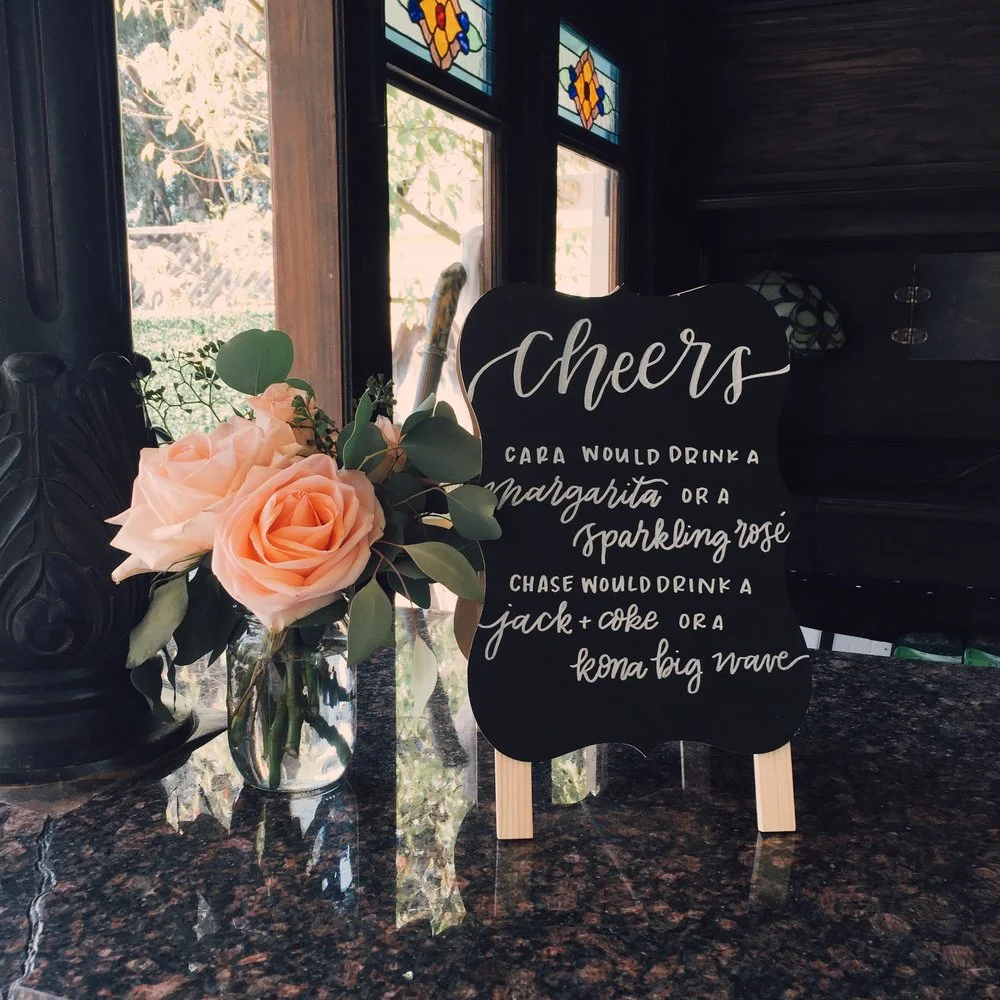 cheers
CARA WOULD DRINK A
margarita OR A
sparkling rosé
CHASE WOULD DRINK A
jack + coke OR A
kona big wave